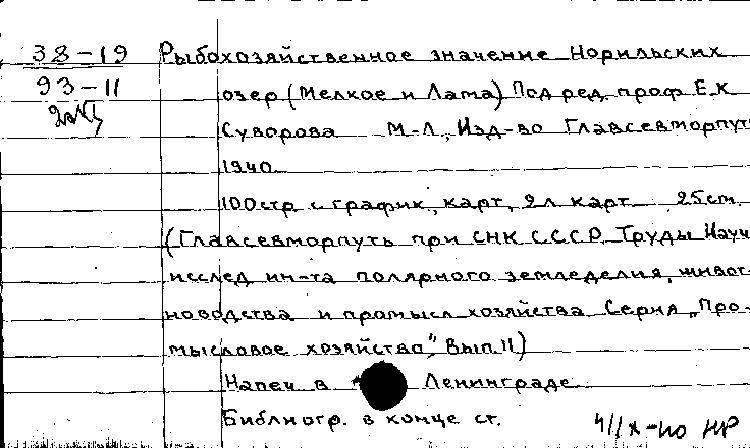 38-19 Рыбохозяйственное значение Норильских
93-11 озер (Мелкое и Лама) Под ред. проф. Е.К
Суворова М-Л, Изд-во Главсевморпути
1940
100стр с график, карт, 2л карт 25cm
(Главсевморпуть при СНК С.С.С.Р. Труды Науч
исслед ин-та полярного земледелия, живот-
новодства и промысл хозяйства Серия „Про-
мысловое хозяйство", Вып. 11)
Напеч в Ленинграде
Библиогр. в конце ст.